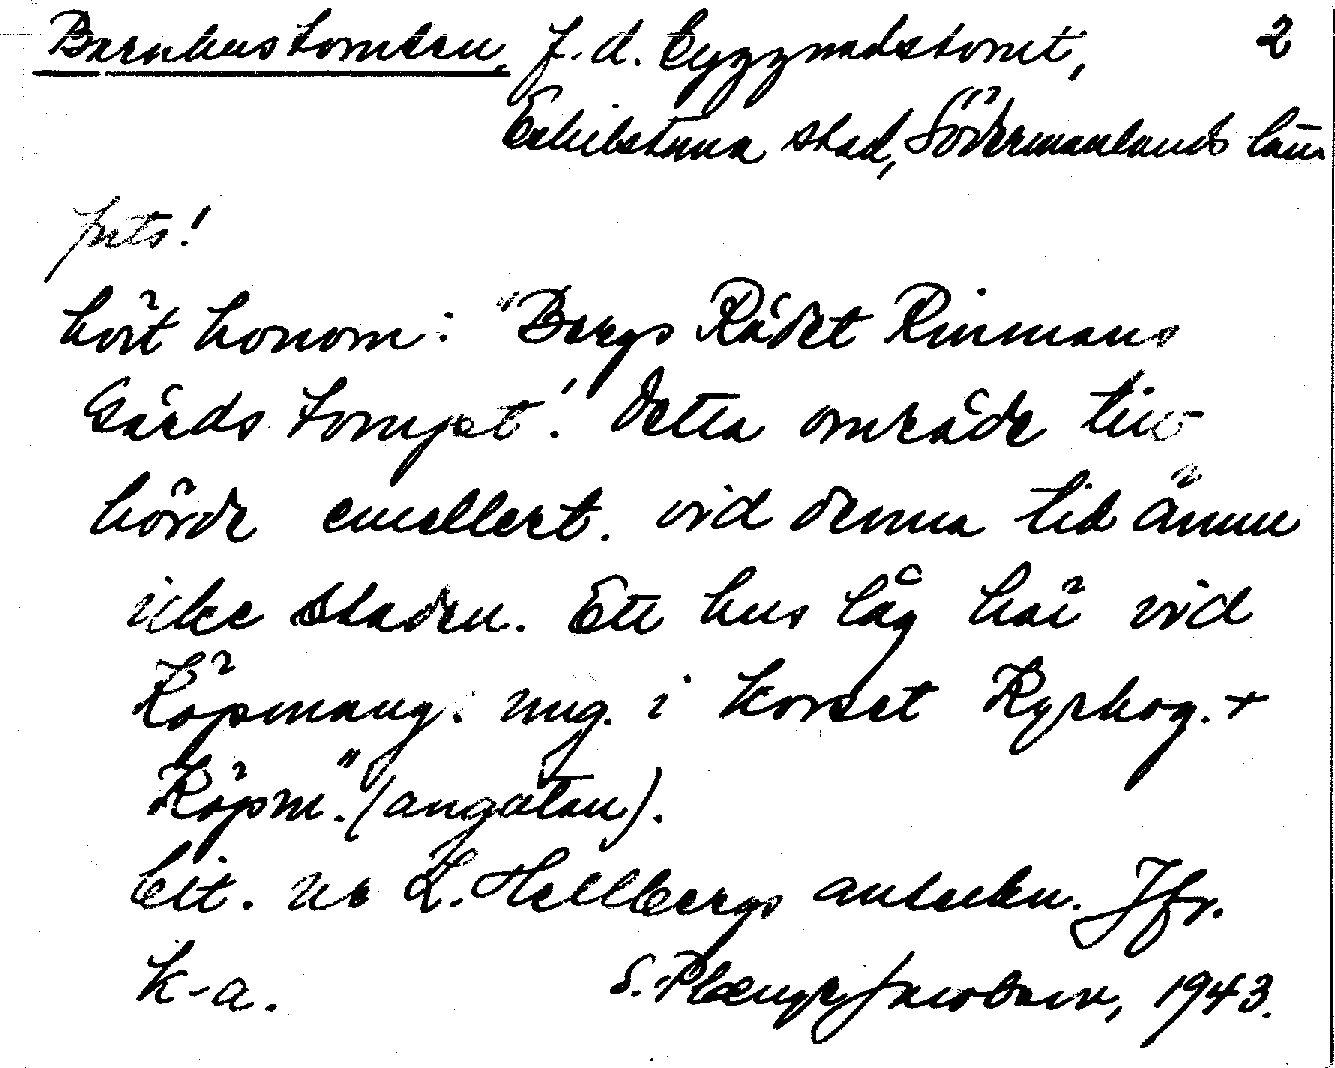 Barnhustomten, f.d. byggnadstomt, 2
Eskilstuna stad, Södermanlands län
hört honom: "Bergs Rådet Rinmans
Gårds tomjet! Detta område till-
hörde emellert. vid denna tid ännu
icke staden. Ett hus låg här vid
Köpmang. mg. i korset Kyrkog. +
Köpm."(angatan).
Cit. ur L. Hellbergs anteckn. Jfr.
k-a. S. Plænge Jacobson, 1943.